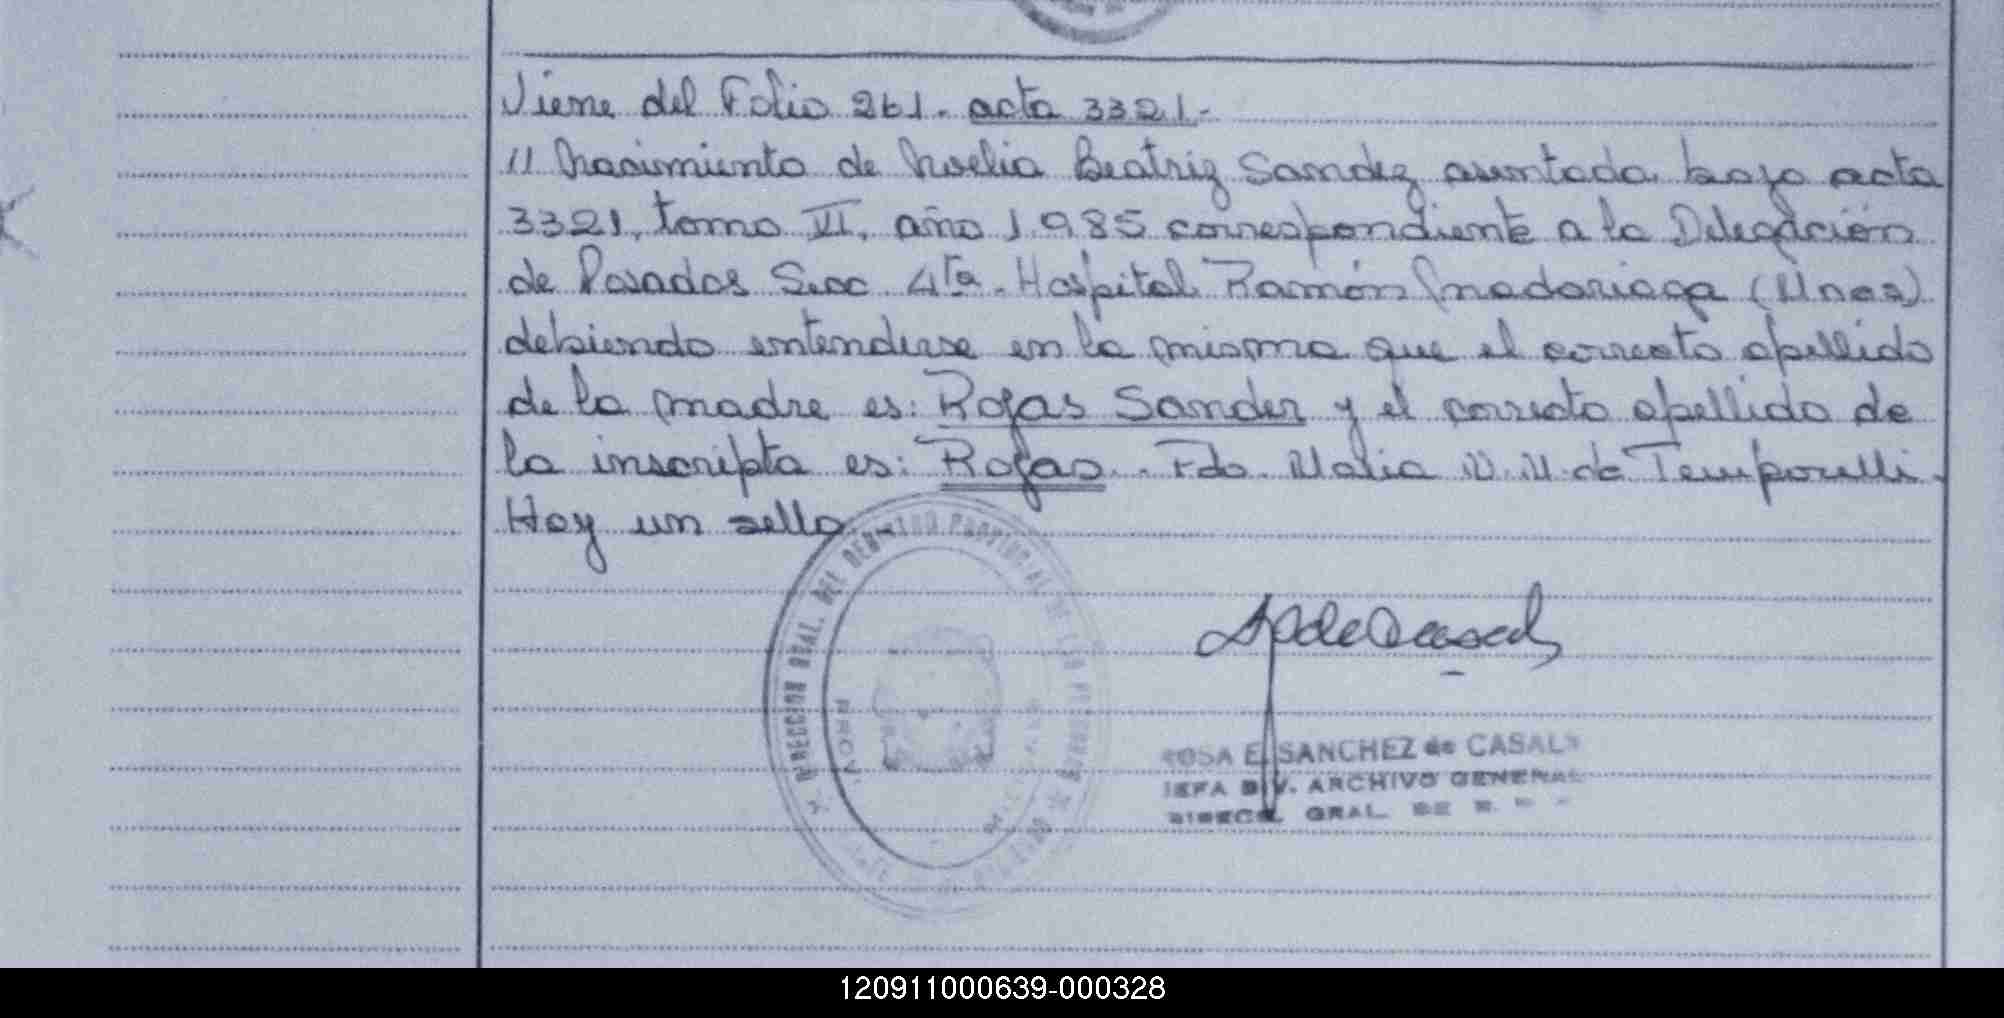 Viene del Folio 261. acta 3321.-
11 Nacimiento de Noelia Beatriz Sandez asentada bajo acta
3321, tomo VI, año 1.985 correspondiente a la Delegación
de Posadas Secc 4ta. Hospital Ramón Madariaga (Mnes)
debiendo entenderse en la misma que el correcto apellido
de la madre es: Rojas Sander y el correcto apellido de
la inscripta es: Rojas. Fdo. Malia N. M. de Temporelli.
Hay un sello.-
DIRECCION GRAL. DEL REGISTRO PROVINCIAL DE LAS PERSONAS
ROSA E. SANCHEZ de CASALS
JEFA DIV. ARCHIVO GENERAL
DIRECC. GRAL. DE R.
120911000639-000328